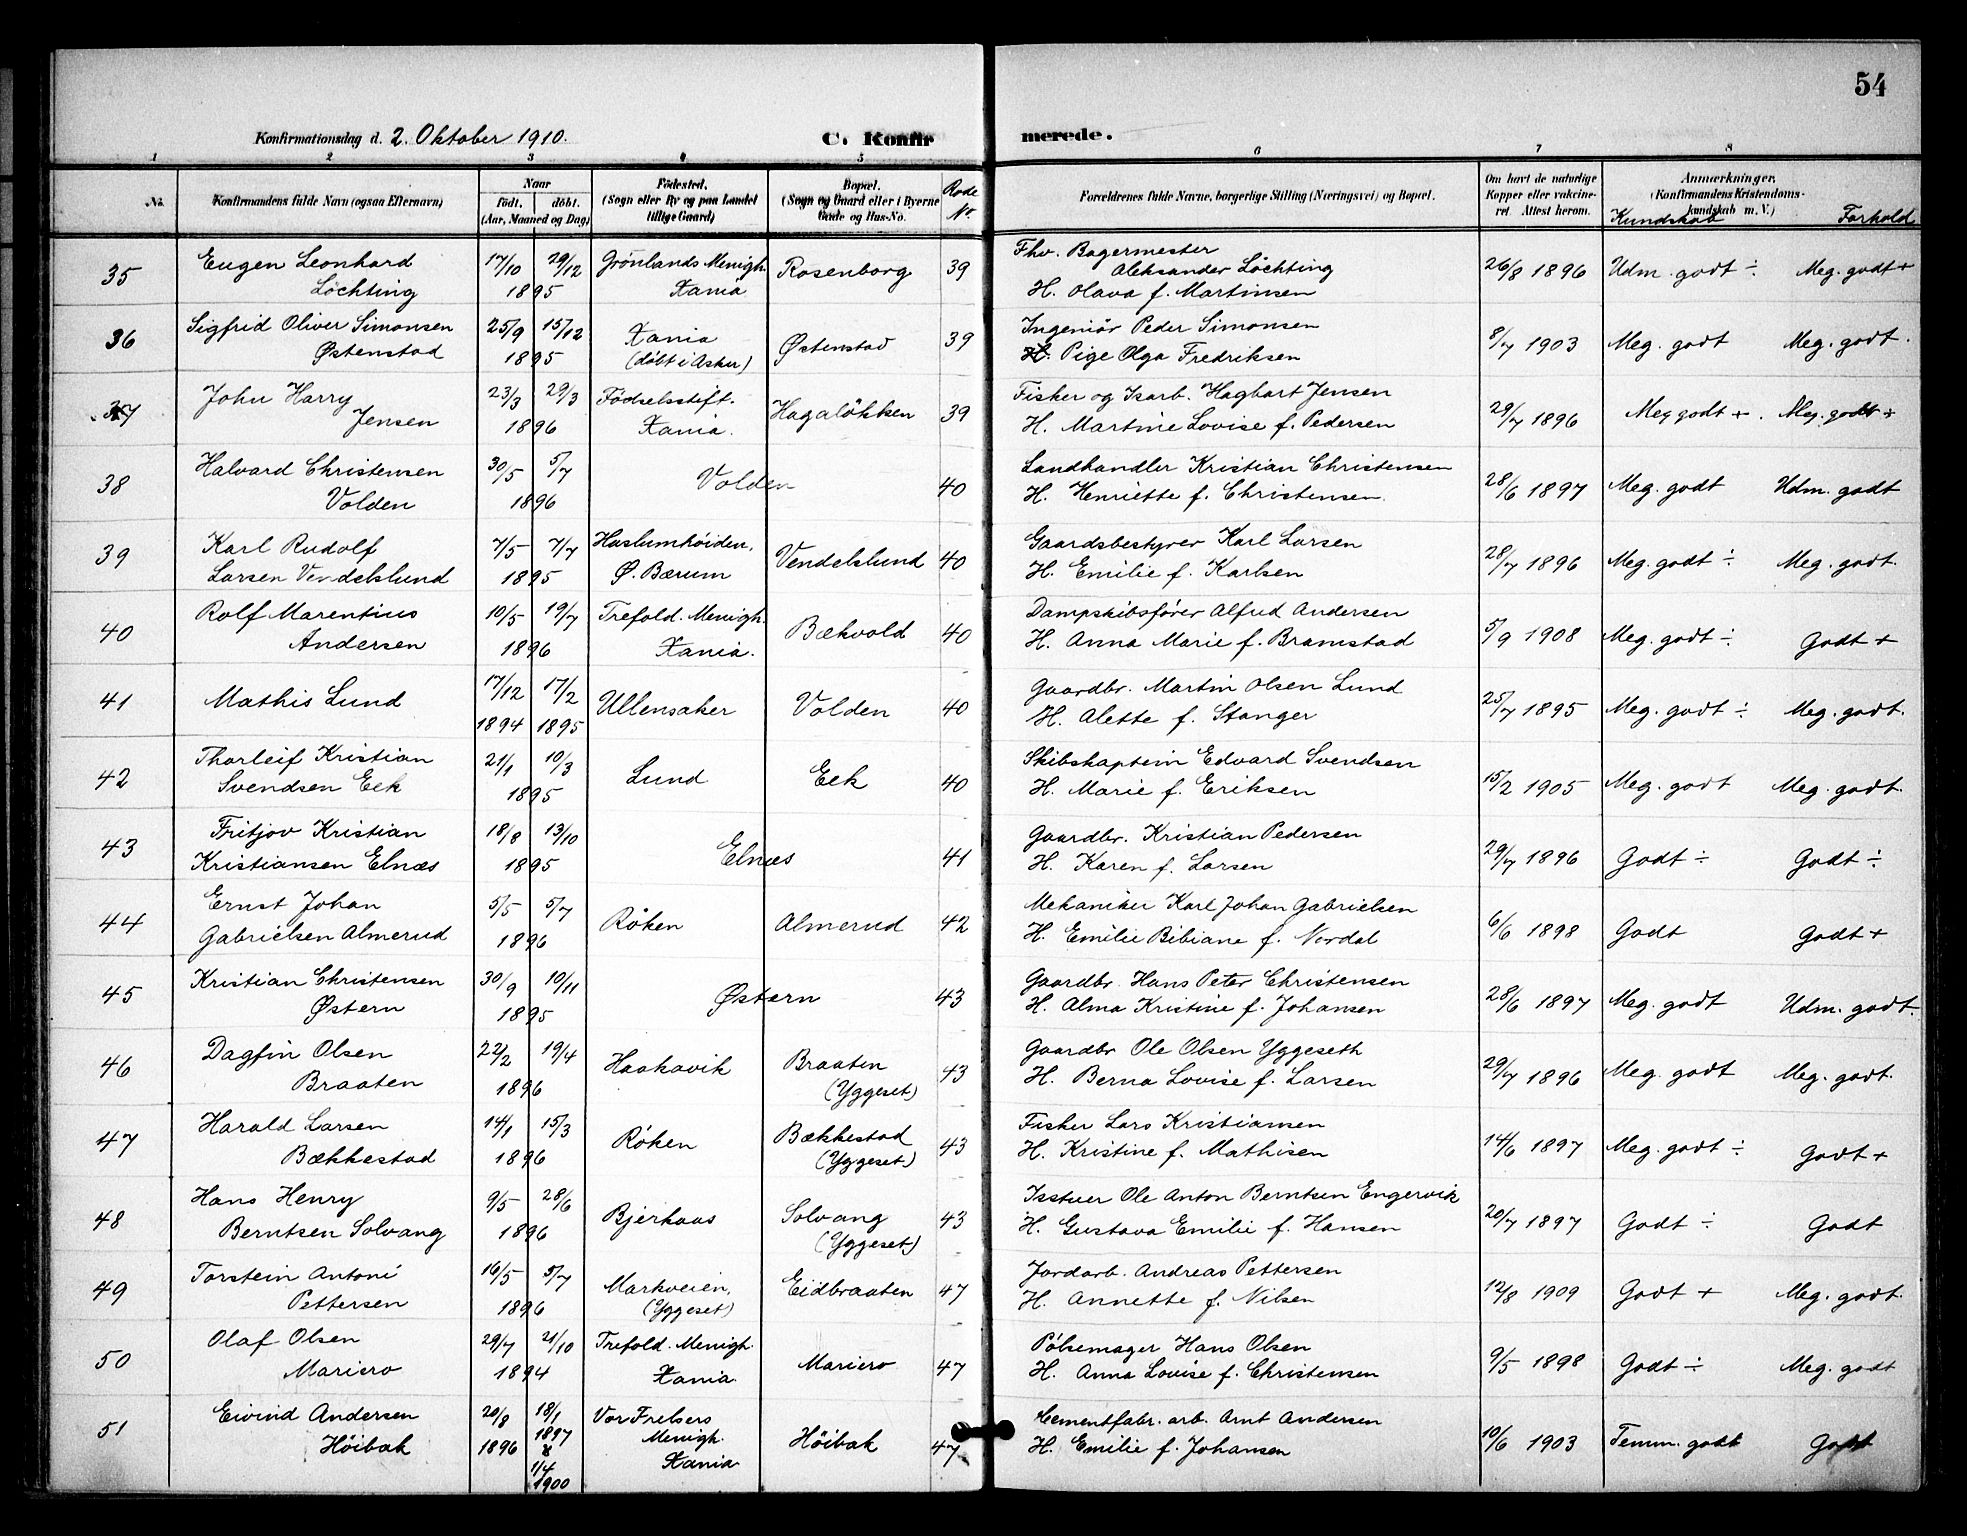 54
Konfirmationsdag d. 2. Oktober 1910. C. Konfirmerede.
1 2 3 4 5 6 7 8
No. Konfirmandens fulde Navn (ogsaa Efternavn) Naar født. døbt. (Aar, Maaned og Dag) Fødested. (Sogn eller By og paa Landet tillige Gaard) Bopæl. (Sogn og Gaard eller i Byerne Gade og Hus-No. Rode Nr. Forældrenes fulde Navne, borgerlige Stilling (Næringsvei) og Bopæl. Om havt de naturlige Kopper eller vakcineret. Attest herom. Anmærkninger. (Konfirmandens Kristendomskundskab m. V.) Kundskab Forhold
35 Eugen Leonhard 17/10 29/12 Grönlands Menigh. Rosenborg 39 Fhv. Bagermester Aleksander Löchting 26/8 1896 Udm. godt ÷ Meg. godt +
Löchting 1895 Xania H. Olava f. Martinsen
36 Sigfrid Oliver Simonsen 25/9 15/12 Xania Østenstad 39 Ingeniör Peder Simonsen 8/7 1903 Meg. godt Meg. godt.
Østenstad 1895 (döbt i Asker) Pige Olga Fredriksen
37 John Harry 23/3 29/3 Födselsstift. Hagalökken 39 Fisker og Isarb. Hagbart Jensen 29/7 1896 Meg godt + Meg. godt +
Jensen 1896 Xania. H. Martine Lovise f. Pedersen
38 Halvard Christensen 30/5 5/7 Volden 40 Landhandler Kristian Christensen 28/6 1897 Meg. godt Udm. godt
Volden 1896 H. Henriette f. Christensen.
39 Karl Rudolf 7/5 7/7 Haslumhöiden, Vendelslund 40 Gaardsbestyrer Karl Larsen 28/7 1896 Meg. godt ÷ Meg. godt.
Larsen Vendelslund 1895 Ø. Bærum H. Emilie f. Karlsen
40 Rolf Marentius 10/5 19/7 Trefold. Menigh. Bækvold 40 Dampskibsfører Alfred Andersen 5/9 1908 Meg. godt ÷ Godt +
Andersen 1896 Xania. H. Anna Marie f. Bramstad
41 Mathis Lund 17/12 17/2 Ullensaker Volden 40 Gaardbr. Martin Olsen Lund 25/7 1895 Meg. godt ÷ Meg. godt.
1894 1895 H. Alette f. Stanger
42 Thorleif Kristian 21/1 10/3 Lund Eek 40 Skibskaptein Edvard Svendsen 15/2 1905 Meg. godt Meg. godt.
Svendsen Eek 1895 H. Marie f. Eriksen
43 Fritjov Kristian 18/8 13/10 Elnæs 41 Gaardbr. Kristian Pedersen 29/7 1896 Godt ÷ Godt ÷
Kristiansen Elnæs 1895 H. Karen f. Larsen
44 Ernst Johan 5/5 5/7 Röken Almerud 42 Mekaniker Karl Johan Gabrielsen 6/6 1898 Godt Godt +
Gabrielsen Almerud 1896 H. Emilie Bibiane f. Nordal
45 Kristian Christensen 30/9 10/11 Østern 43 Gaardbr. Hans Peter Christensen 28/6 1897 Meg. godt Udm. godt.
Østern 1895 H. Alma Kristine f. Johansen
46 Dagfin Olsen 22/2 19/4 Haakavik Braaten 43 Gaardbr Ole Olsen Yggeseth 29/7 1896 Meg. godt Meg. godt.
Braaten 1896 (Yggeset) H. Berna Lovise f. Larsen
47 Harald Larsen 14/1 15/3 Röken Bækkestad 43 Fisker Lars Kristiansen 14/6 1897 Meg. godt ÷ Godt +
Bækkestad 1896 (Yggeset) H. Kristine f. Mathisen
48 Hans Henry 9/5 28/6 Bjerkaas Solvang 43 Isstuer Ole Anton Berntsen Engervik 20/7 1897 Godt ÷ Godt
Berntsen Solvang 1896 (Yggeset) H. Gustava Emilie f. Hansen
49 Torstein Antoni 16/5 5/7 Markveien, Eidbraaten 47 Jordarb. Andreas Pettersen 12/8 1909 Godt + Meg. godt.
Pettersen 1896 (Yggeset) H. Annette f. Nilsen
50 Olaf Olsen 29/7 21/10 Trefold. Menigh. Mariero 47 Pölsemager Hans Olsen 9/5 1898 Godt ÷ Meg. godt
Mariero 1894 Xania. H. Anna Lovise f. Christensen
51 Eivind Andersen 20/8 18/1 Vor Frelsers Höibak 47 Cementfabr. arb. Arnt Andersen 10/6 1903 Temm. godt Godt
Höibak 1896 1897 & Menigh. H. Emilie f. Johansen
1/4 1900 Xania